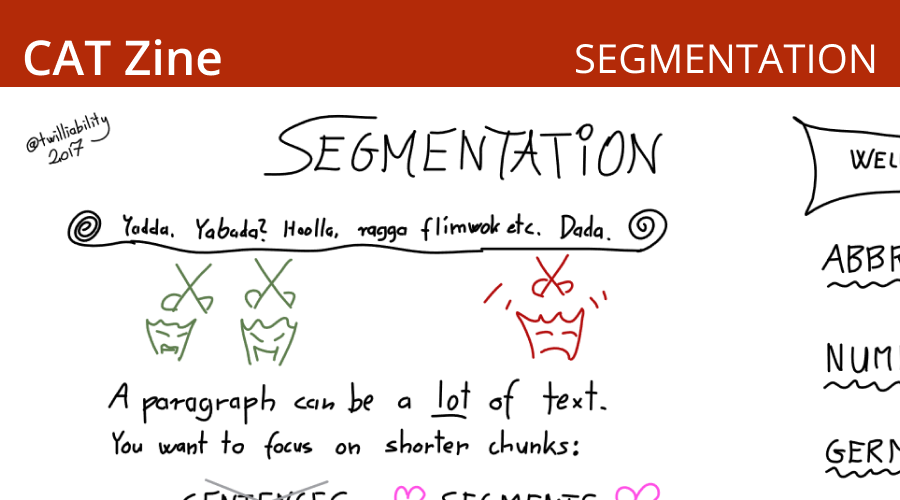 CAT Zine
SEGMENTATION
@twilliability
2017
SEGMENTATiON
Yadda. Yabada? Hoolla, ragga flimwok etc. Dada.
A paragraph can be a lot of text.
You want to focus on shorter chunks:
SENTENCES SEGMENTS
WEL
ABBR
NUM
GERM